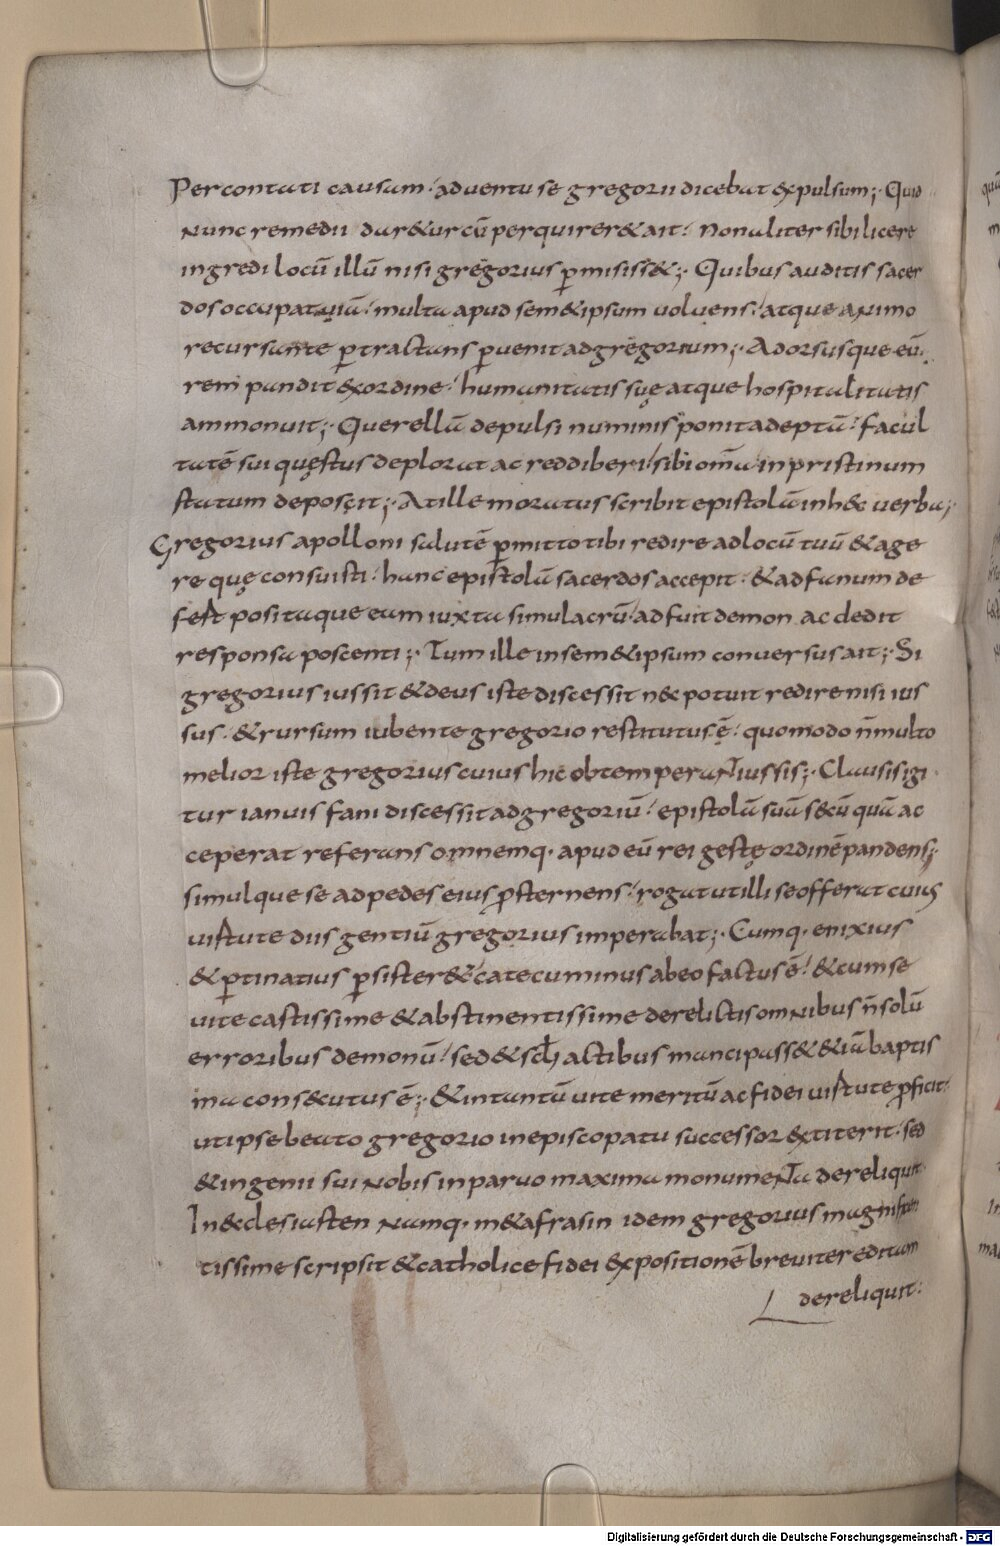 Percontati causam. aduentu se gregorii dicebat expulsum;. Quid
nunc remedii dar&ur cū perquirer& ait. Non aliter sibi licere
ingredi locū illū nisi gregorius p̲misiss&;. Quibus auditis sacer
dos occupat uiā. multa apud sem&ipsum uoluens. atque animo
recursante p̲tractans p̲uenit ad gregorium;. Adorsusque eū.
rem pandit exordine. humanitatis suę atque hospitalitatis
ammonuit;. Querellā depulsi numinis ponit adeptā. facul
tatē sui quęstus deplorat ac reddi beri sibi om̄a in pristinum
statum deposcit;. At ille moratus scribit epistolā in h&c uerba;.
Gregorius apolloni salutē p̲mitto tibi redire ad locū tuū & age
re quę consuisti. hanc epistolā sacerdos accepit. & ad fanum de
fert positaque eam iuxta simulacrū. adfuit demon ac dedit
responsa poscenti;. Tum ille in sem&ipsum conuersus ait;. Si
gregorius iussit & deus iste discessit n&c potuit redire nisi ius
sus. & rursum iubente gregorio restitutus ē. quomodo n̄ multo
melior iste gregorius cuius hic obtemperaNt iussis;. Clausis igi
tur ianuis fani discessit ad gregoriū. epistolā suā secū quā ac
ceperat referans omnemq. apud eū rei gestę ordinē pandens;.
simulque se ad pedes eius p̲sternens. rogat ut illi se offerat cuius
uirtute diis gentiū gregorius imperabat;. Cumq. enixius
& p̲tinatius p̲sister& catecuminus ab eo factus ē. & cum se
uite castissime & abstinentissime derelictis omnibus n̄ solū
erroribus demonū. sed & scłi actibus mancipass& & iā baptis
ma cons&cutus ē;. & in tantū uite meritū ac fidei uirtute p̲ficit.
ut ipse beato gregorio in episcopatu successor extiterit. sed
& ingenii sui nobis in paruo maxima monumeNta dereliquit.
In &clesiasten namq. m&afrasin idem gregorius magnificen
tissime scripsit & catholice fidei expositionē breuiter editam
dereliquit.
Digitalisierung gefördert durch die Deutsche Forschungsgemeinschaft - DFG